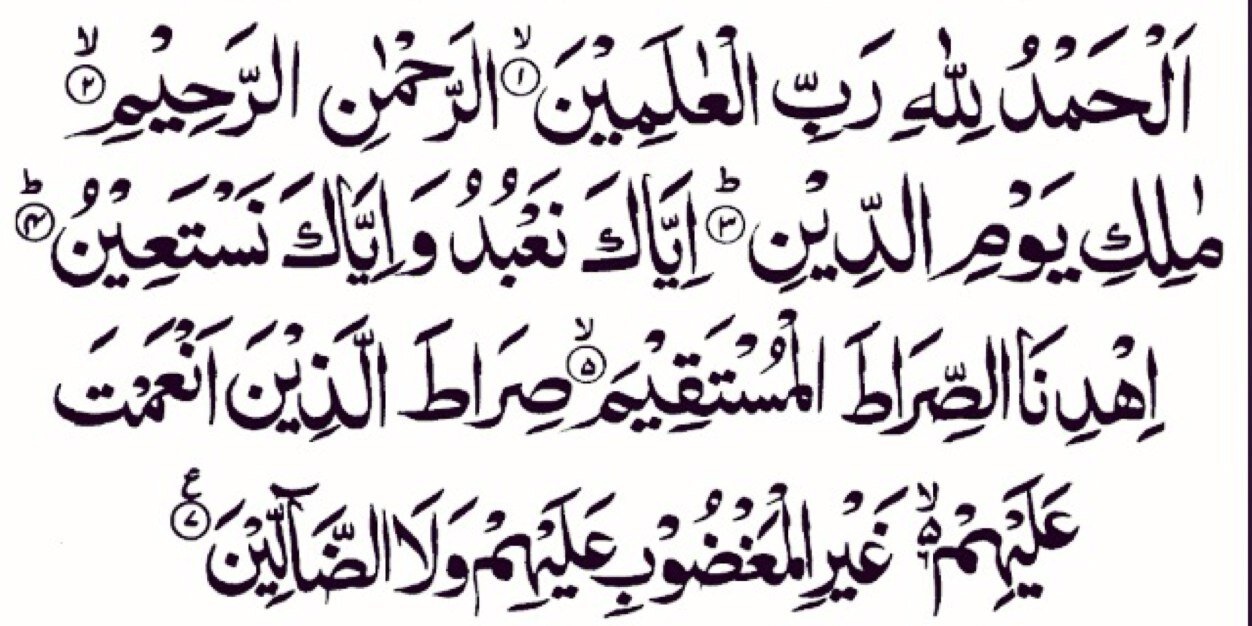 اَلْحَمْدُ لِلّٰهِ رَبِّ الْعٰلَمِيْنَ ۙ﴿۱﴾ الرَّحْمٰنِ الرَّحِيْمِ ۙ﴿۲﴾
مٰلِكِ يَوْمِ الدِّيْنِ ؕ﴿۳﴾ اِيَّاكَ نَعْبُدُ وَ اِيَّاكَ نَسْتَعِيْنُ ؕ﴿۴﴾
اِهْدِنَا الصِّرَاطَ الْمُسْتَقِيْمَ ۙ﴿۵﴾ صِرَاطَ الَّذِيْنَ اَنْعَمْتَ
عَلَيْهِمْ ۙ۬ۦ غَيْرِ الْمَغْضُوْبِ عَلَيْهِمْ وَلَا الضَّآلِّيْنَ ﴿۷﴾ ع